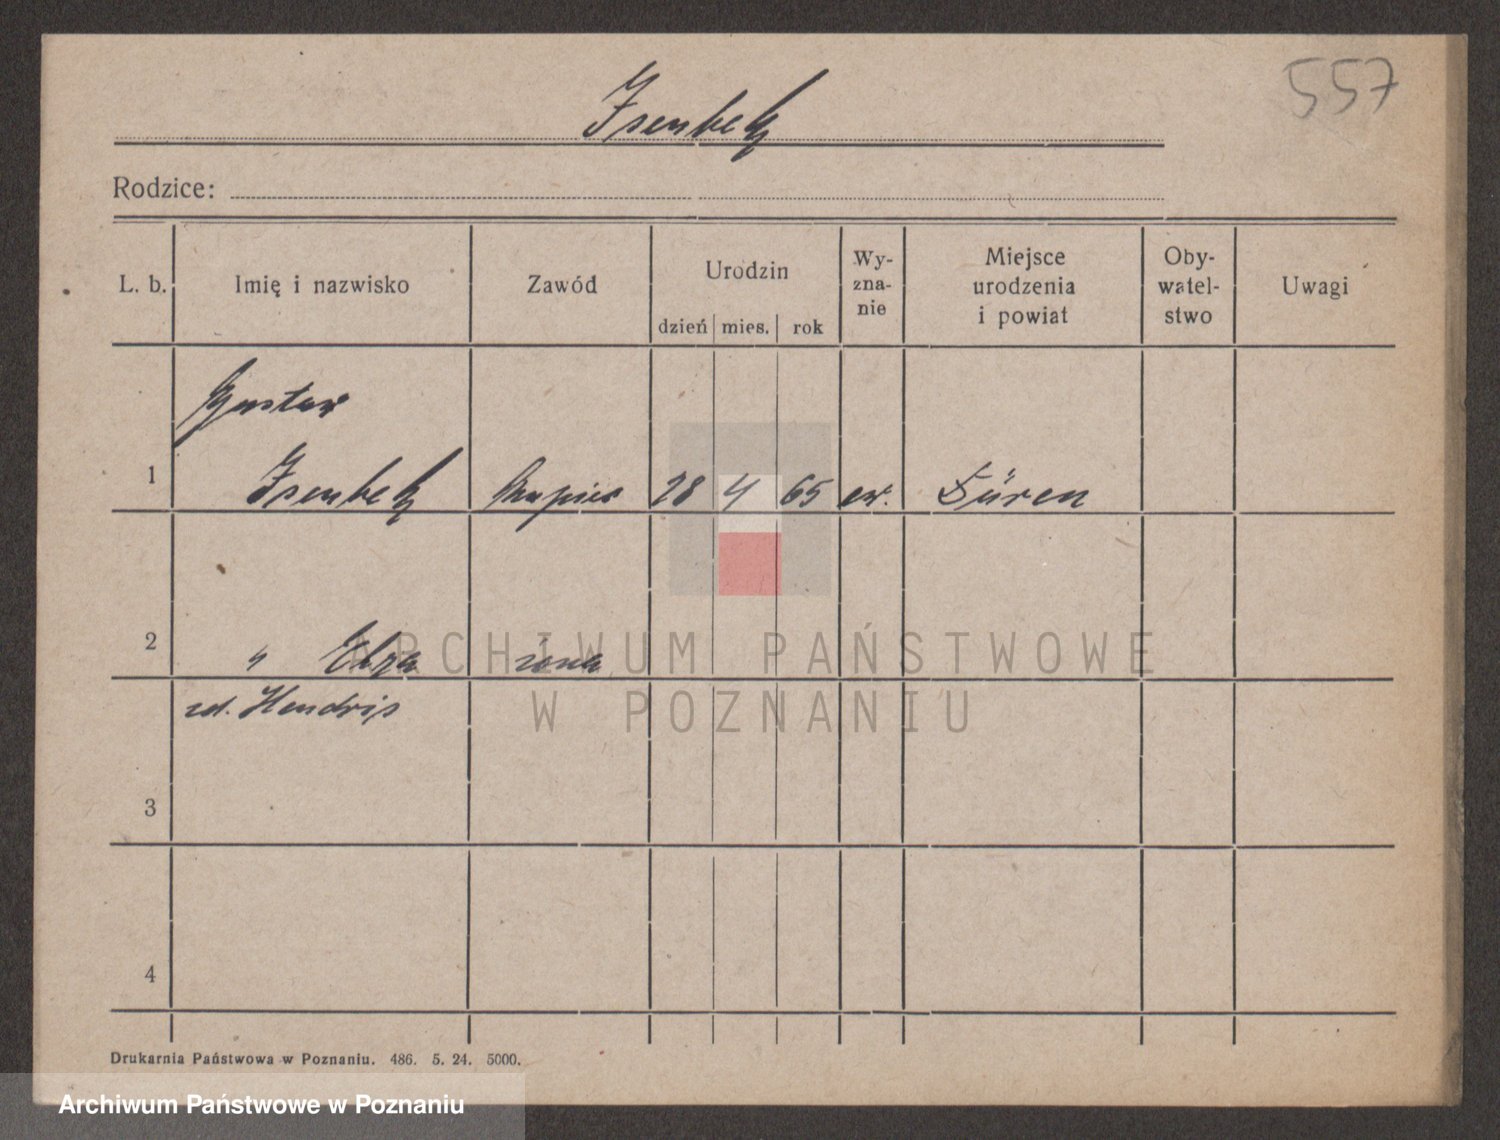 557
Isenbeck
Rodzice:
L. b. Imię i nazwisko Zawód Urodzin Wy-zna-nie Miejsce urodzenia i powiat Oby-watel-stwo Uwagi
dzień mies. rok
Gustav
1 Isenbeck kupiec 28 4 65 ew. Düren
2 " Elza żona
zd. Hendrix
3
4
Drukarnia Państwowa w Poznaniu. 486. 5. 24. 5000.
ARCHIWUM PAŃSTWOWE
W POZNANIU
Archiwum Państwowe w Poznaniu